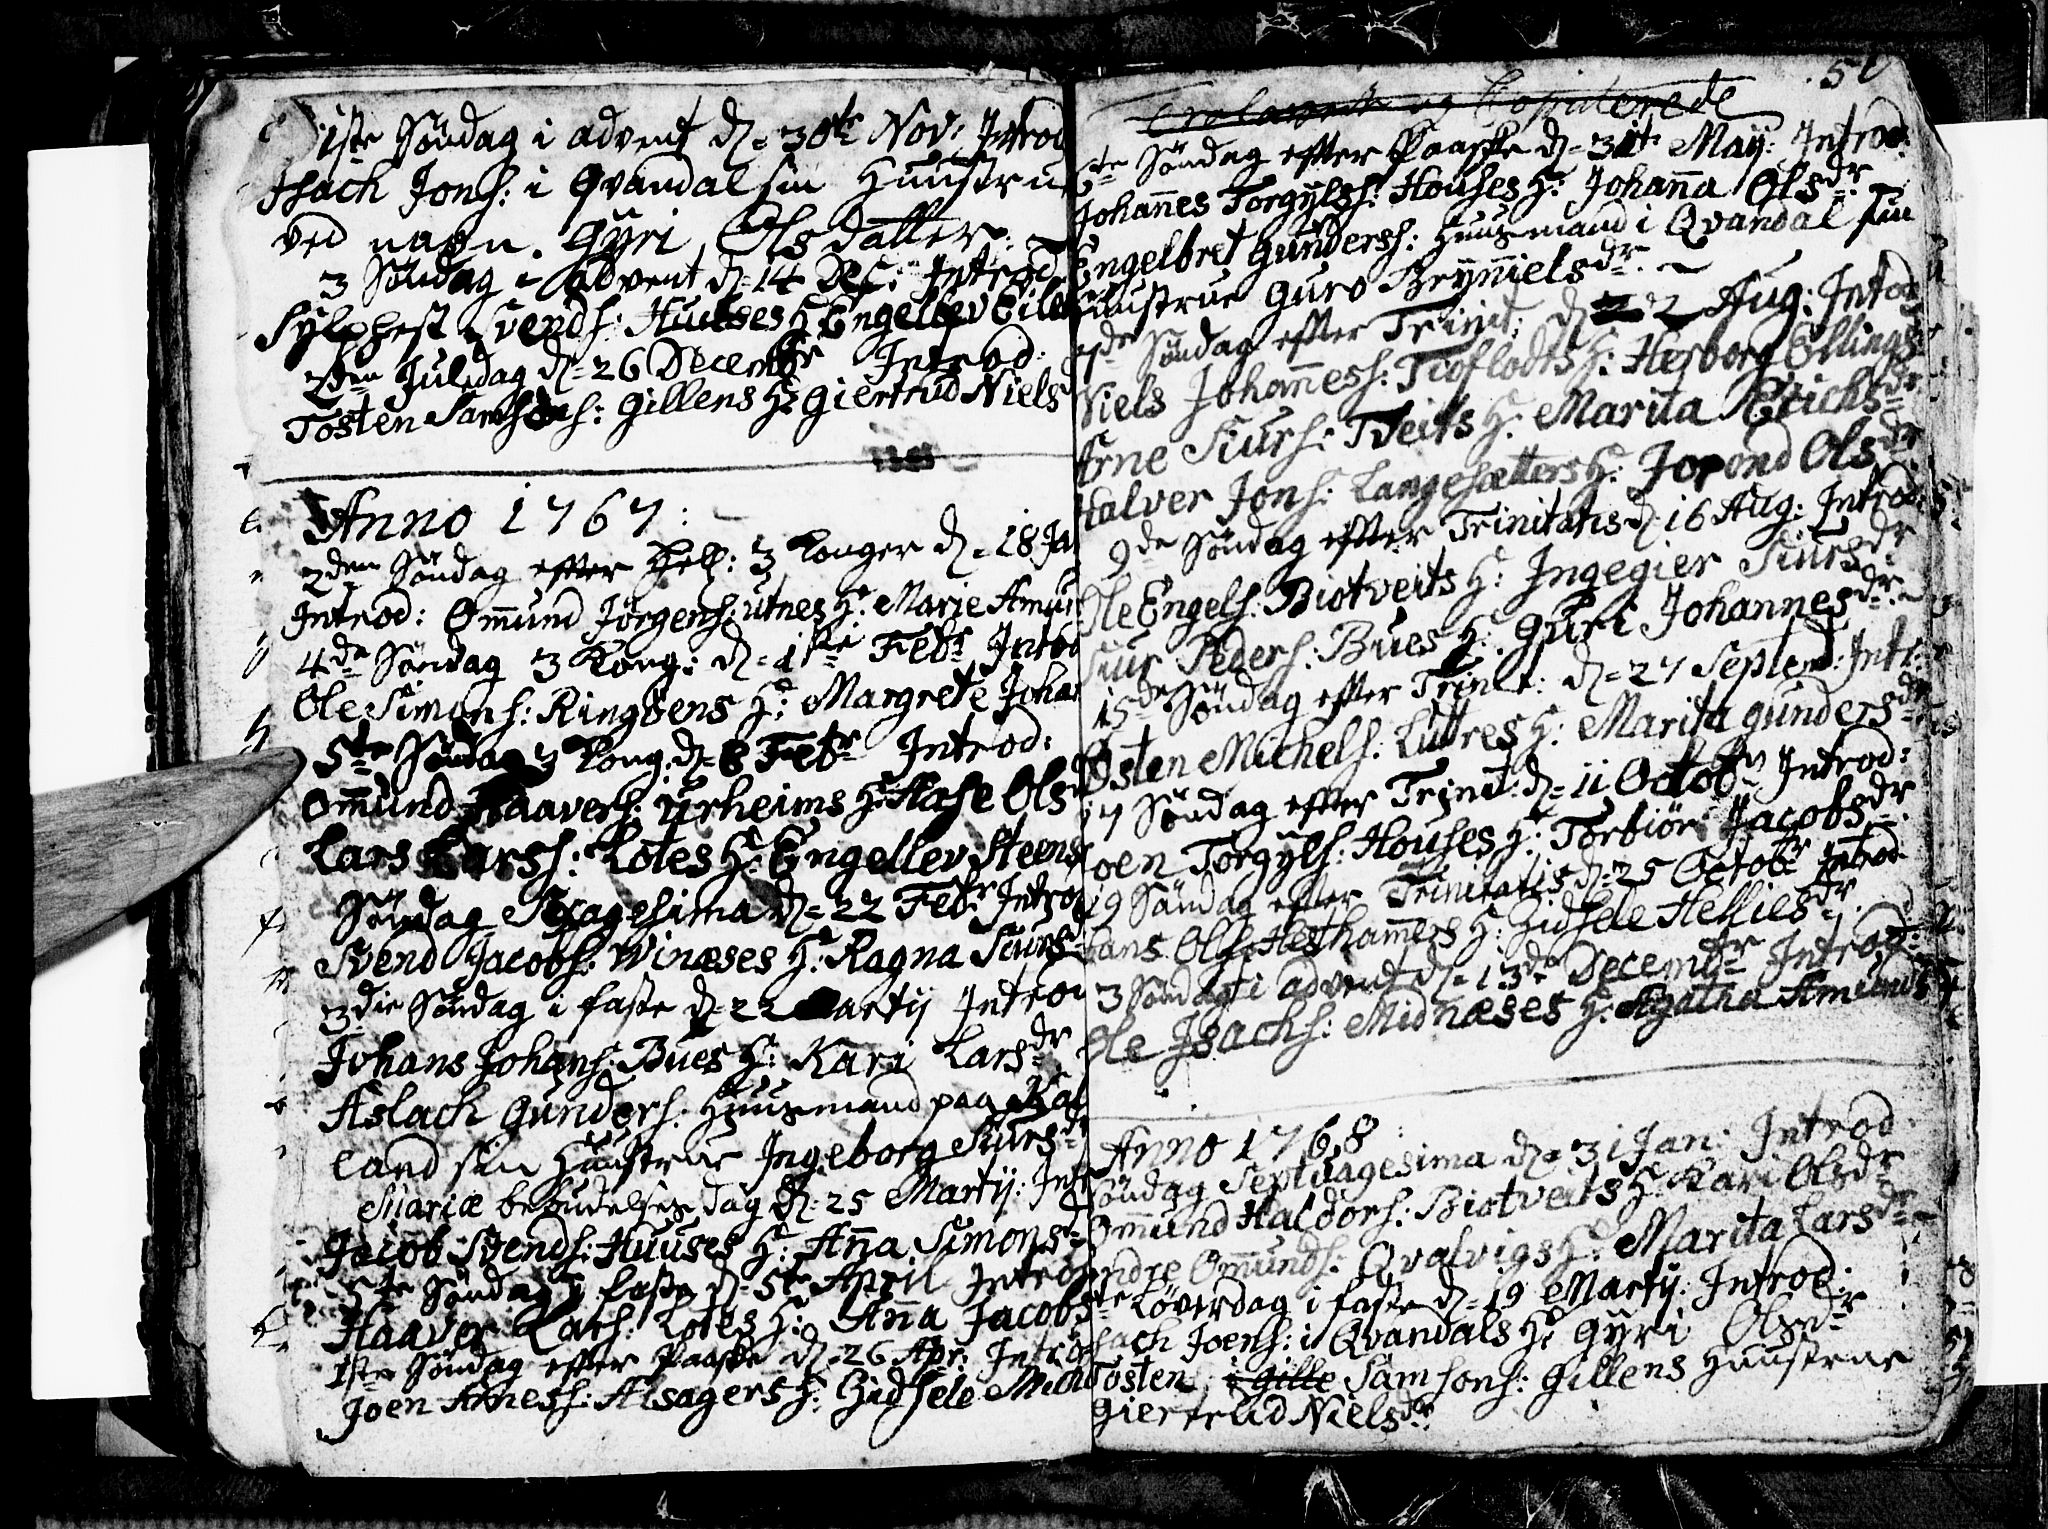 1ste Søndag i advent d: 30te Nov: Introd
Isach Jons: i Qvandal sin Huustru
ved nafn. Gÿri Olsdatter.
3 Søndag i Advent d: 14 Dec: Introd:
Sylphest Svends: Huuses H: Engellev Eil
2den Juledag d: 26 Decembr Introd:
Tosten Samsons: Gillens H: Giertrud Niels
Anno 1767:
2den Søndag efter Hell: 3 Konger d: 18 Ja
Introd: Omund Jørgens: Utnes H: Marie Amun
4de Søndag 3 Kong: d: 1ste Febr Introd
Ole Simons: Ringøens H: Margrete Johan
5te Søndag 3 Kong: d: 8 Febr Introd:
Omund Haavers: Urheims H: Aase Ols
Lars Lars: Lotes H: Engellev Steens
Søndag Sexagesima d: 22 Febr Introd
Svend Jacobs: Winæses H: Ragna Siurs
3die Søndag i faste d: 22 Martij Introd
Johans Johans: Bues H: Kari Larsdr
Aslach Gunders: Huusmand paa Kal
land sin Huustrue Ingeborg Siursdr
Mariæ bebudelses Dag d: 25 Martij: Int
Jacob Svends: Huuses H: Anna Simons
5te Søndag i faste d: 5te April Introd
Haaver Lars: Lotes H: Anna Jacobs
1ste Søndag efter Paaske d: 26 Apr: Introd
Joen Arnes: Alsagers H: Zidsele Mich
51
Trolovede og Copulerede
Søndag efter Paaske d: 31te Maij: Introd:
Johannes Torgÿls: Houses H: Johanna Olsdr
Engelbret Gunders: Huusmand i Qvandal sin
Huustrue Guro Brÿnnielsdr.
7de Søndag efter Trinit: d: 2 Aug: Introd
Niels Johannes: Tioflodts H: Herborg Ellings
Arne Siurs: Tveits H: Marita Erichsdr
Halver Jons: Langesætters H: Jorond Olsdr
9de Søndag efter Trinitatis d: 16 Aug: Introd:
Ole Engels: Biotveits H: Ingegier Siursdr
Siur Peders: Bues H: Guri Johannesdr.
15de Søndag efter Trinit: d: 27 Septemb: Intr:
Østen Michels: Lutres H: Marita Gundersdr
17 Søndag efter Trinit: d: 11 Octobr Introd:
Joen Torgÿls: Houses H: Torbiør Jacobsdr.
19 Søndag efter Trinitatis d: 25 Octobr Introd
Hans Ols: Hesthamers H: Zidsele Helliesdr.
3 Søndag i advent d: 13de Decembr Introd:
Ole Isachs: Midnæses H: Agatha Amunds
Anno 1768
Søndag Septuagesima d: 31 Jan: Introd
Omund Haldors: Biotveits H: Kari Olsdr
Andre Omunds: Qvalvigs H: Marita Larsdr
Løverdag i faste d: 19 Martij: Introd:
Isach Joens: i Qvandals H: Gÿri Olsdr
Tosten i Gille Samsons: Gillens Huustrue
Giertrud Nielsdr: